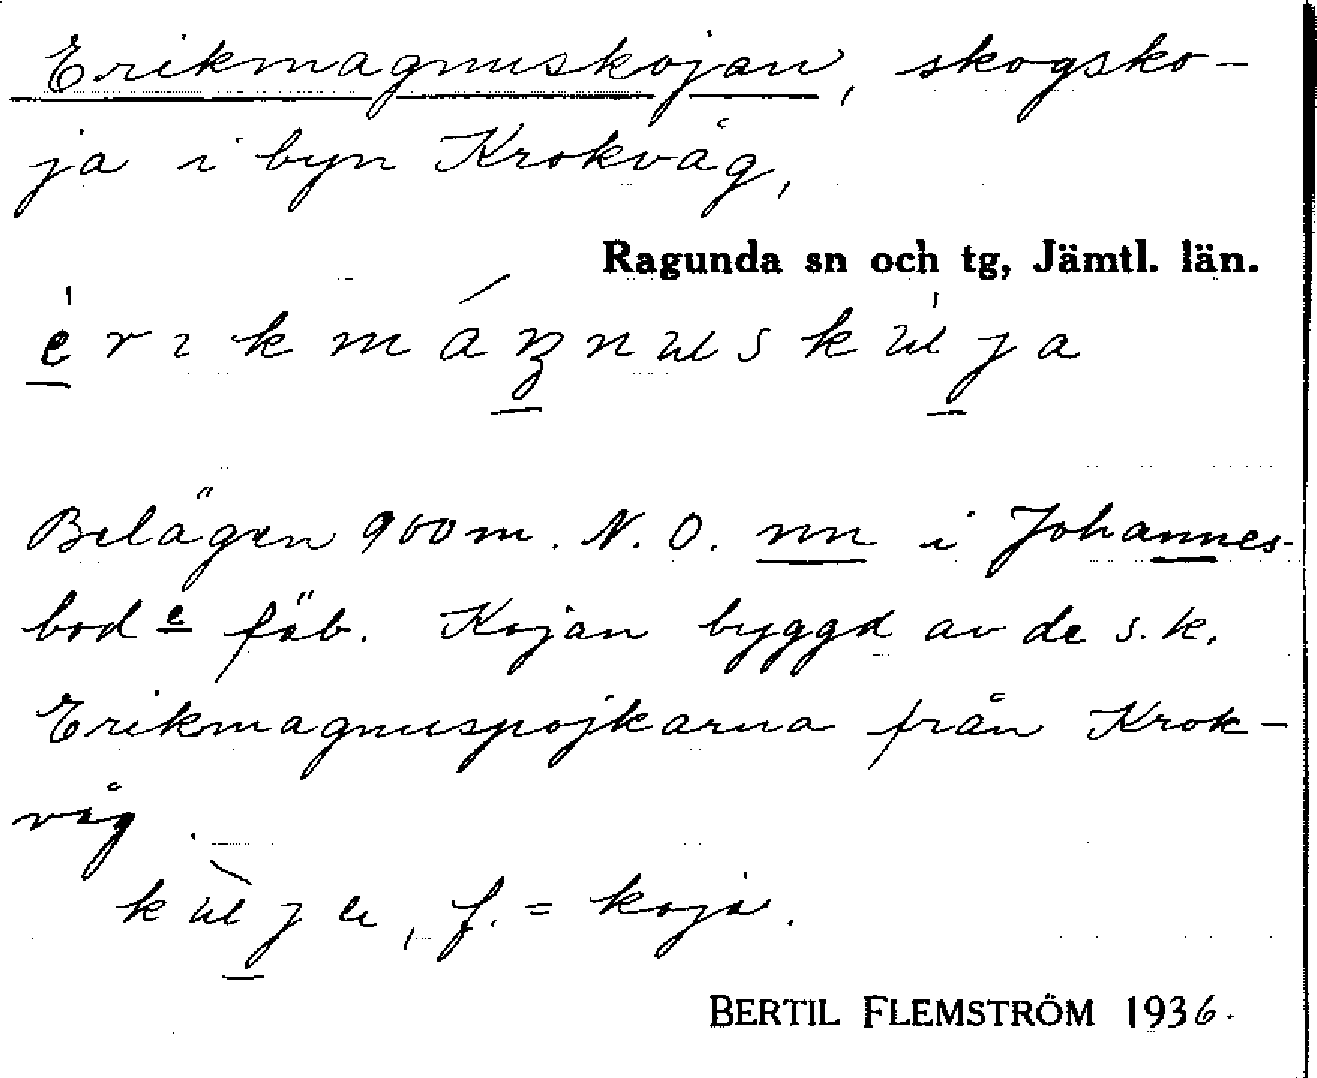 Erikmagnuskojan, skogsko-
ja i byn Krokvåg,
Ragunda sn och tg, Jämtl. län.
Belägen 900 m. N. O. nn i Johannes-
bod e fäb. Kojan byggd av de s.k.
Erikmagnuspojkarna från Krok-
våg.
f. = koja.
BERTIL FLEMSTRÖM 1936.